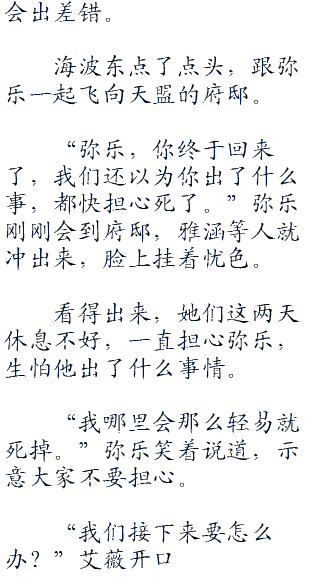 会出差错。
海波东点了点头，跟弥
乐一起飞向天盟的府邸。
“弥乐，你终于回来
了，我们还以为你出了什么
事，都快担心死了。”弥乐
刚刚会到府邸，雅涵等人就
冲出来，脸上挂着忧色。
看得出来，她们这两天
休息不好，一直担心弥乐，
生怕他出了什么事情。
“我哪里会那么轻易就
死掉。”弥乐笑着说道，示
意大家不要担心。
“我们接下来要怎么
办？”艾薇开口